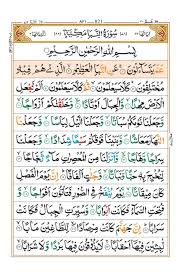 سُوْرَةُ النَّبَاِ مَكِّيَّةٌ
بِسْمِ اللّٰهِ الرَّحْمٰنِ الرَّحِيْمِ
عَمَّ يَتَسَآءَلُوْنَ عَنِ النَّبَاِ الْعَظِيْمِ الَّذِيْ هُمْ فِيْهِ
مُخْتَلِفُوْنَ كَلَّا سَيَعْلَمُوْنَ ثُمَّ كَلَّا سَيَعْلَمُوْنَ اَلَمْ نَجْعَلِ
الْاَرْضَ مِهٰدًا وَّالْجِبَالَ اَوْتَادًا وَّخَلَقْنٰكُمْ اَزْوَاجًا
وَّجَعَلْنَا نَوْمَكُمْ سُبَاتًا وَّجَعَلْنَا الَّيْلَ لِبَاسًا وَّجَعَلْنَا
النَّهَارَ مَعَاشًا وَّبَنَيْنَا فَوْقَكُمْ سَبْعًا شِدَادًا وَّجَعَلْنَا
سِرَاجًا وَّهَّاجًا وَّاَنْزَلْنَا مِنَ الْمُعْصِرٰتِ مَآءً ثَجَّاجًا
لِّنُخْرِجَ بِهٖ حَبًّا وَّنَبَاتًا وَّجَنّٰتٍ اَلْفَافًا اِنَّ يَوْمَ الْفَصْلِ
كَانَ مِيْقَاتًا يَّوْمَ يُنْفَخُ فِي الصُّوْرِ فَتَاْتُوْنَ اَفْوَاجًا وَّ
فُتِحَتِ السَّمَآءُ فَكَانَتْ اَبْوَابًا وَّسُيِّرَتِ الْجِبَالُ فَكَانَتْ
سَرَابًا اِنَّ جَهَنَّمَ كَانَتْ مِرْصَادًا لِّلطَّاغِيْنَ مَاٰبًا
لّٰبِثِيْنَ فِيْهَآ اَحْقَابًا لَا يَذُوْقُوْنَ فِيْهَا بَرْدًا وَّلَا شَرَابًا